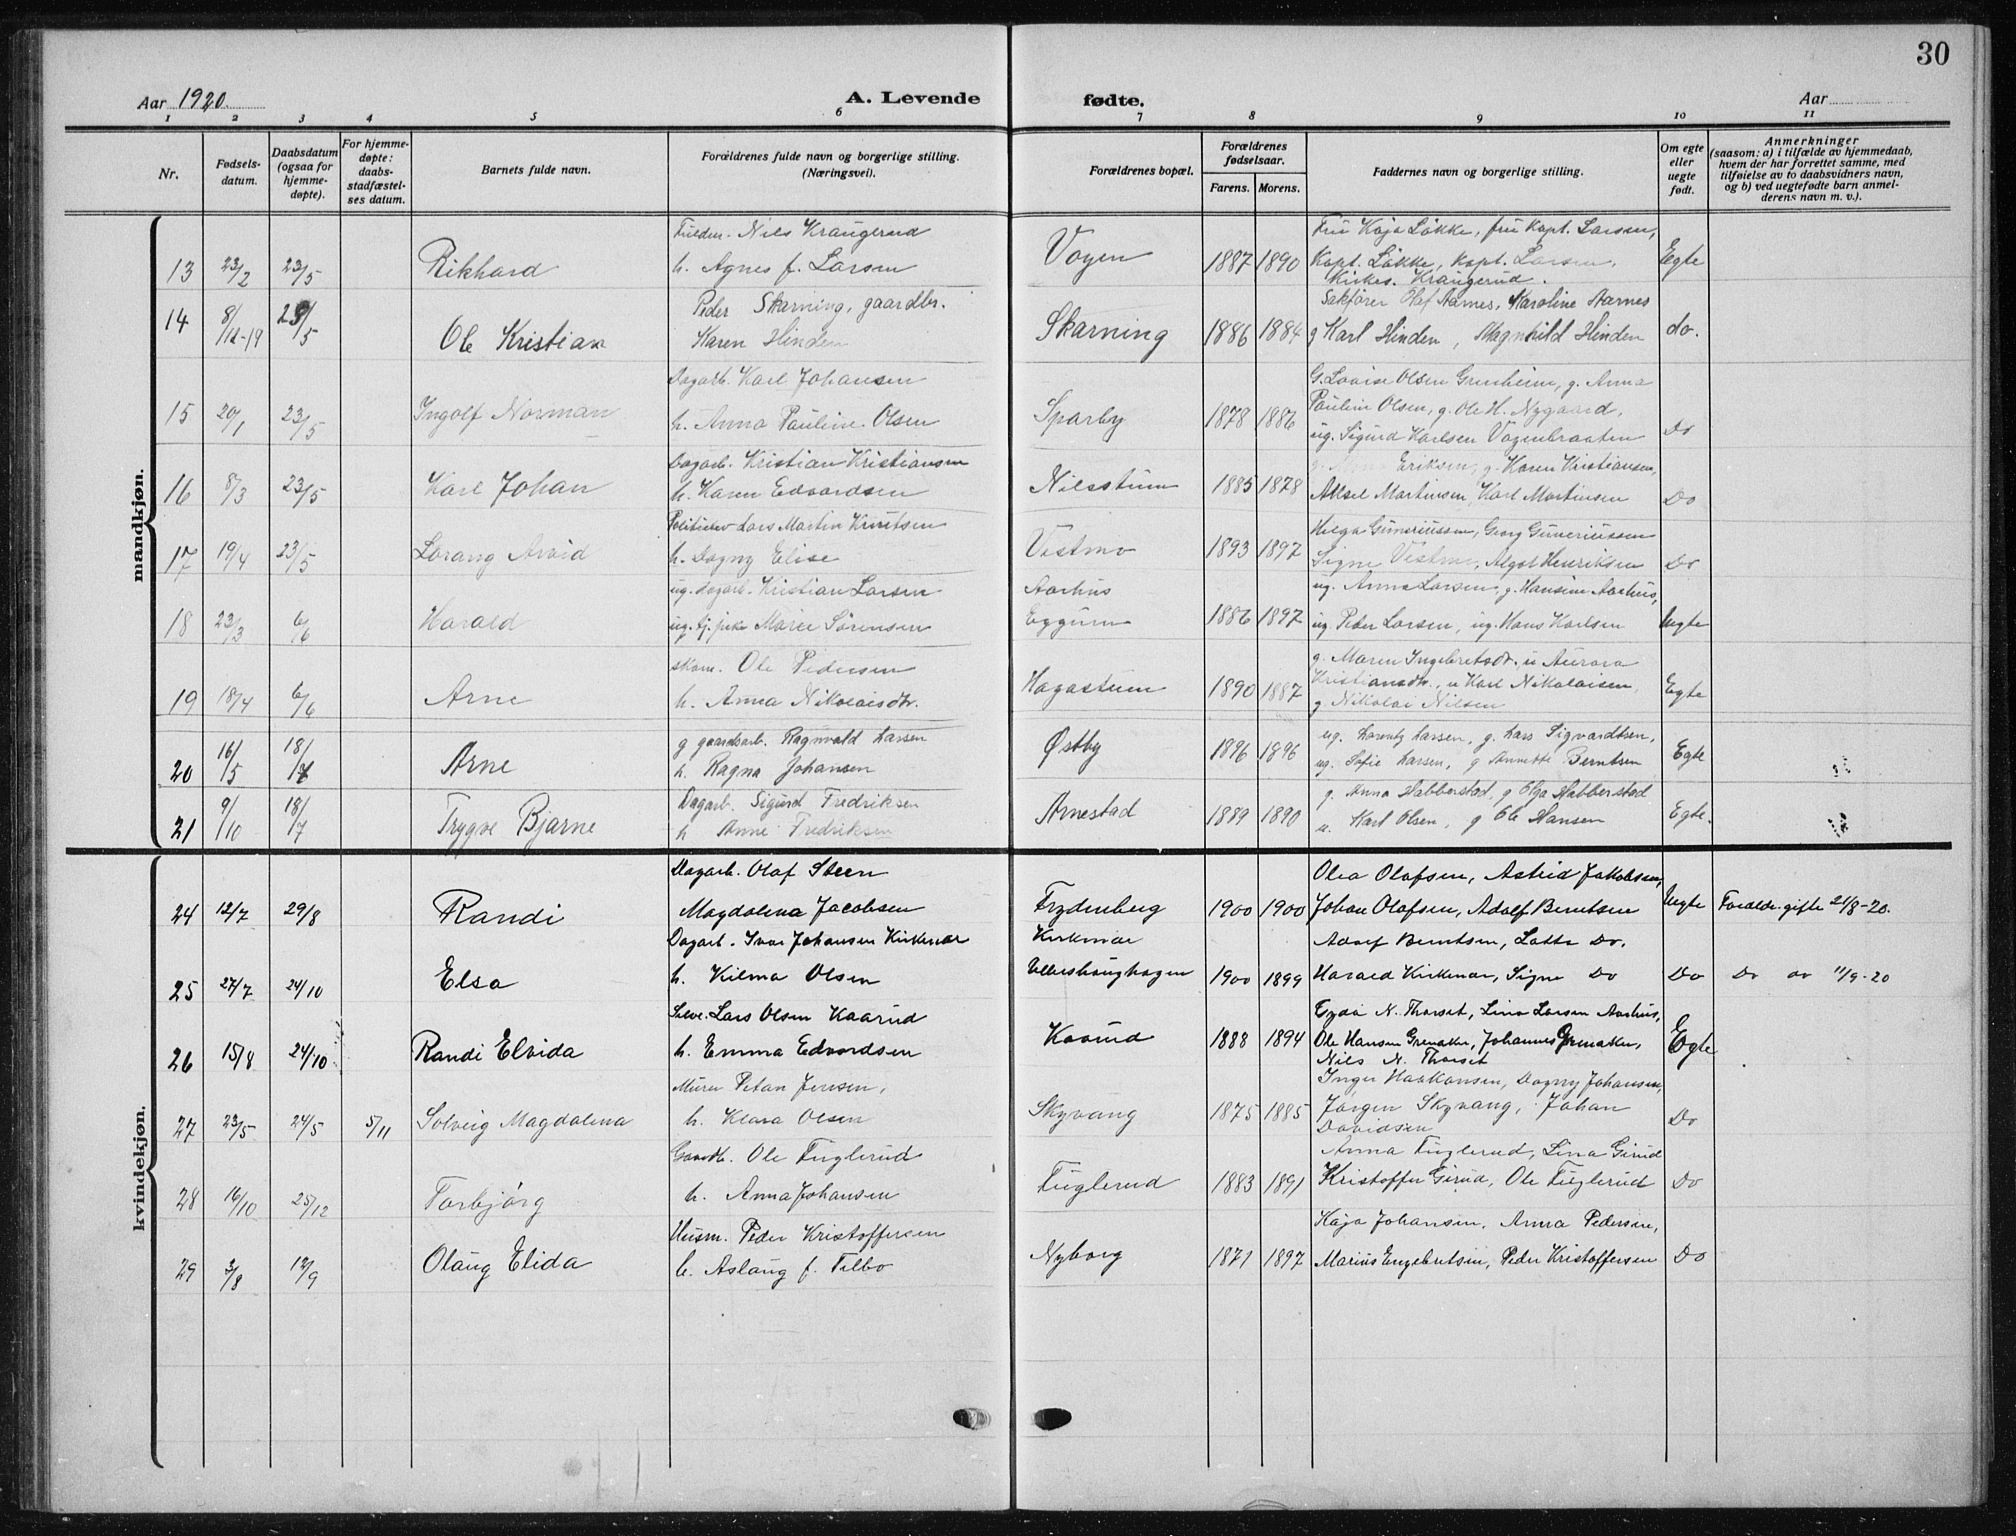 30
Aar 1920.
A. Levende
fødte.
Aar
1 2 3 4 5 6 7 8 9 10 11
Nr.
Fødsels-
datum.
Daabsdatum
(ogsaa for
hjemme-
døpte).
For hjemme-
døpte:
daabs-
stadfæstel-
ses datum.
Barnets fulde navn.
Forældrenes fulde navn og borgerlige stilling.
(Næringsvei).
Forældrenes bopæl.
Forældrenes
fødselsaar.
Farens. Morens.
Faddernes navn og borgerlige stilling.
Om egte
eller
uegte
født.
Anmerkninger
(saasom: a) i tilfælde av hjemmedaab,
hvem der har forrettet samme, med
tilføielse av to daabsvidners navn,
og b) ved uegtefødte barn anmel-
derens navn m. v.).
mandkjøn.
Nils Kraugerud Fru Kaja Løkke, fru Kapt. Larsen,
13 23/2 23/5 Rikhard h. Agnes f. Larsen Vogen 1887 1890 Kapt. Løkke, Kapt. Larsen, Egte
Kirkes. Kraugerud.
Peder Skarning, gaardbr. Sakfører Olaf Aarnes, Karoline Aarnes
14 8/12-19 23/5 Ole Kristian Karen Hinden Skarning 1886 1884 g Karl Hinden, Magnhild Hinden do.
Dagarb. Karl Johansen G. Lovise Olsen Grenheim, g. Anna
15 20/1 23/5 Ingolf Norman h. Anna Pauline Olsen Sparby 1878 1886 Pauline Olsen, g. Ole H. Nygaard,
ug. Sigurd Karlsen Vogenbraaten Do
Dagarb. Kristian Kristiansen g. Eriksen, g. Karen Kristiansen,
16 8/3 23/5 Karl Johan h. Karen Edvardsen Nilsstuen 1885 1878 Aksel Martinsen, Karl Martinsen Do
Lars Martin Knutsen Helga Guneriussen, Georg Gunerius­sen
17 19/4 23/5 Lorang Arvid h. Dagny Elise Vestmo 1893 1897 Signe Vestmo, Algot Henriksen Do
ug. dagarb. Kristian Larsen Aarhus ug. Anna Larsen, g. Hansine Aarhus,
18 23/3 6/6 Harald ug. tj. pike Marie Sørensen Eggum 1886 1897 ug. Peder Larsen, ug. Hans Karlsen Uegte
skom. Ole Pedersen g. Maren Ingebretsdr. u Aurora
19 18/4 6/6 Arne h. Anna Nikolaisdtr. Hagastuen 1890 1887 Kristiansdtr., u Karl Nikolaisen, Egte
g Nikolai Nilsen
g gaardsarb. Ragnvald Larsen ug. Lorentz Larsen, g. Lars Sigvardtsen,
20 16/5 18/7 Arne h. Ragna Johansen Østby 1896 1896 ug. Sofie Larsen, g Annette Berntsen Egte
Dagarb. Sigurd Fredriksen g. Anna Habberstad, g Olga Habberstad
21 9/10 18/7 Trygve Bjarne h Anne Fredriksen Arnestad 1889 1890 u. Karl Olsen, g Ole Hansen Egte.
kvindekjøn.
Dagarb. Olaf Steen Olea Olafsen, Astrid Jakobsen,
24 12/7 29/8 Randi Magdalena Jacobsen Frydenberg 1900 1900 Johan Olafsen, Adolf Berntsen Uegte Forældr. gifte 21/8-20.
Dagarb. Ivar Johansen Kirkenær Kirkenær Adolf Berntsen, Lotte Do.
25 27/7 24/10 Elsa h. Kilma Olsen 1900 1899 Harald Kirkenær, Signe Do Do Do av 11/9-20
Selve. Lars Olsen Kaarud Gyda N. Thorset, Lina Larsen Aarhus,
26 15/8 24/10 Randi Elvida h. Emma Edvardsen Kaarud 1888 1894 Ole Hansen Grenaker, Johannes Grenaker, Egte
Nils N. Thorset
Murer Petan Jensen, Inger Haakonsen, Dagny Johansen,
27 23/5 24/5 5/11 Solveig Magdalena h. Klara Olsen Skyvang 1875 1885 Jørgen Skyvang, Johan Do
Davidsen
Gaardb. Ole Fuglerud Anna Fuglerud, Lina Girud
28 16/10 25/12 Torbjørg h. Anna Johansen Fuglerud 1883 1891 Kristoffer Girud, Ole Fuglerud Do
Husm. Peder Kristoffersen Kaja Johansen, Anna Pedersen,
29 3/8 12/9 Olaug Elida h. Aslaug f. Tilbo Nyborg 1871 1897 Marius Engebretsen, Peder Kristoffersen Do